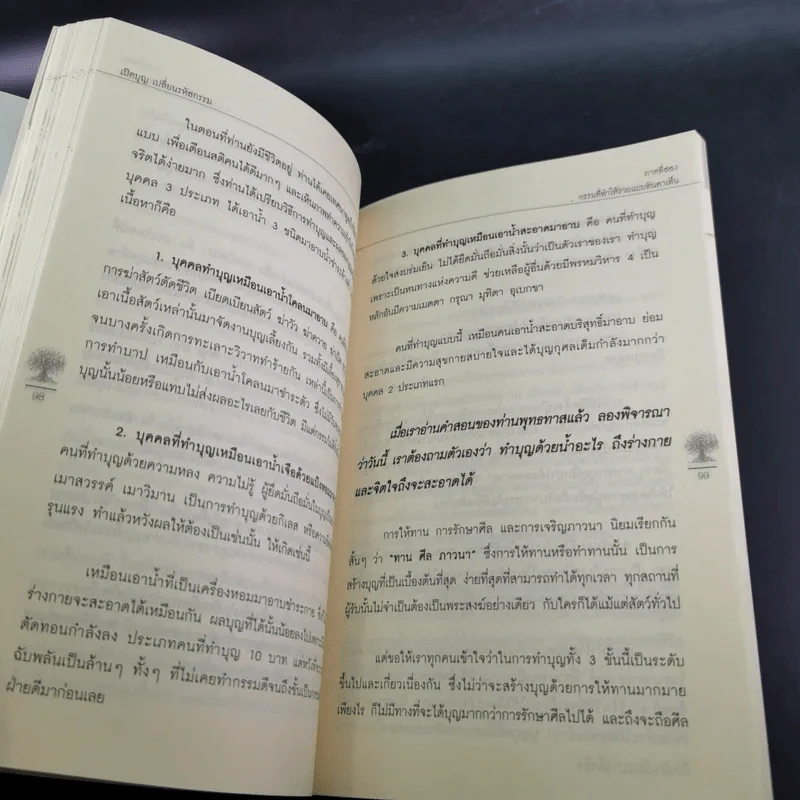 เปิดบุญ เปลี่ยนรหัสกรรม
ในตอนที่ท่านยังมีชีวิตอยู่ ท่านได้เคยเทศนา
แบบ เพื่อเตือนสติคนได้ดีมากๆ และเห็นภาพทำความเข้าใจ
จริตได้ง่ายมาก ซึ่งท่านได้เปรียบวิธีการทำบุญและผล
บุคคล 3 ประเภท ได้เอาน้ำ 3 ชนิดมาอาบน้ำชำระล้าง
เนื้อหาก็คือ
1. บุคคลทำบุญเหมือนเอาน้ำโคลนมาอาบ คือ
การฆ่าสัตว์ตัดชีวิต เบียดเบียนสัตว์ ฆ่าวัว ฆ่าควาย ฆ่าเป็ด
เอาเนื้อสัตว์เหล่านั้นมาจัดงานบุญเลี้ยงกัน รวมทั้งมีเลี้ยงสุรา
จนบางครั้งเกิดการทะเลาะวิวาททำร้ายกัน เหล่านี้เป็น
การทำบาป เหมือนกับเอาน้ำโคลนมาชำระตัว ซึ่งไม่มี
บุญนั้นน้อยหรือแทบไม่ส่งผลอะไรเลยกับชีวิต มีแต่กรรม
98
2. บุคคลที่ทำบุญเหมือนเอาน้ำเจือด้วยแป้งหอมมา
คนที่ทำบุญด้วยความหลง ความไม่รู้ ผู้ยึดมั่นถือมั่นในบุญ
เมาสวรรค์ เมาวิมาน เป็นการทำบุญด้วยกิเลส หรือความ
รุนแรง ทำแล้วหวังผลให้ต้องเป็นเช่นนั้น ให้เกิดเช่นนี้
เหมือนเอาน้ำที่เป็นเครื่องหอมมาอาบชำระกาย
ร่างกายจะสะอาดได้เหมือนกัน ผลบุญที่ได้นั้นน้อยลงไปเพราะ
ตัดทอนกำลังลง ประเภทคนที่ทำบุญ 10 บาท แต่หวัง
ฉับพลันเป็นล้านๆ ทั้งๆ ที่ไม่เคยทำกรรมดีจนถึงขั้นเป็น
ฝ่ายดีมาก่อนเลย
ภาคที่สอง
กรรมที่ทำให้รวยแบบทันตาเห็น
3. บุคคลที่ทำบุญเหมือนเอาน้ำสะอาดมาอาบ คือ คนที่ทำบุญ
ด้วยใจสงบร่มเย็น ไม่ได้ยึดมั่นถือมั่นสิ่งนั้นว่าเป็นตัวเราของเรา ทำบุญ
เพราะเป็นหนทางแห่งความดี ช่วยเหลือผู้อื่นด้วยมีพรหมวิหาร 4 เป็น
หลักอันมีความเมตตา กรุณา มุทิตา อุเบกขา
คนที่ทำบุญแบบนี้ เหมือนคนเอาน้ำสะอาดบริสุทธิ์มาอาบ ย่อม
สะอาดและมีความสุขกายสบายใจและได้บุญกุศลเต็มกำลังมากกว่า
บุคคล 2 ประเภทแรก
เมื่อเราอ่านคำสอนของท่านพุทธทาสแล้ว ลองพิจารณา
ว่าวันนี้ เราต้องถามตัวเองว่า ทำบุญด้วยน้ำอะไร ถึงร่างกาย
และจิตใจถึงจะสะอาดได้
99
การให้ทาน การรักษาศีล และการเจริญภาวนา นิยมเรียกกัน
สั้นๆ ว่า "ทาน ศีล ภาวนา" ซึ่งการให้ทานหรือทำทานนั้น เป็นการ
สร้างบุญที่เป็นเบื้องต้นที่สุด ง่ายที่สุดที่สามารถทำได้ทุกเวลา ทุกสถานที่
ผู้รับนั้นไม่จำเป็นต้องเป็นพระสงฆ์อย่างเดียว กับใครก็ได้แม้แต่สัตว์ทั่วไป
แต่ขอให้เราทุกคนเข้าใจว่าในการทำบุญทั้ง 3 ขั้นนี้เป็นระดับ
ขึ้นไปและเกี่ยวเนื่องกัน ซึ่งไม่ว่าจะสร้างบุญด้วยการให้ทานมากมาย
เพียงไร ก็ไม่มีทางที่จะได้บุญมากกว่าการรักษาศีลไปได้ และถึงจะถือศีล